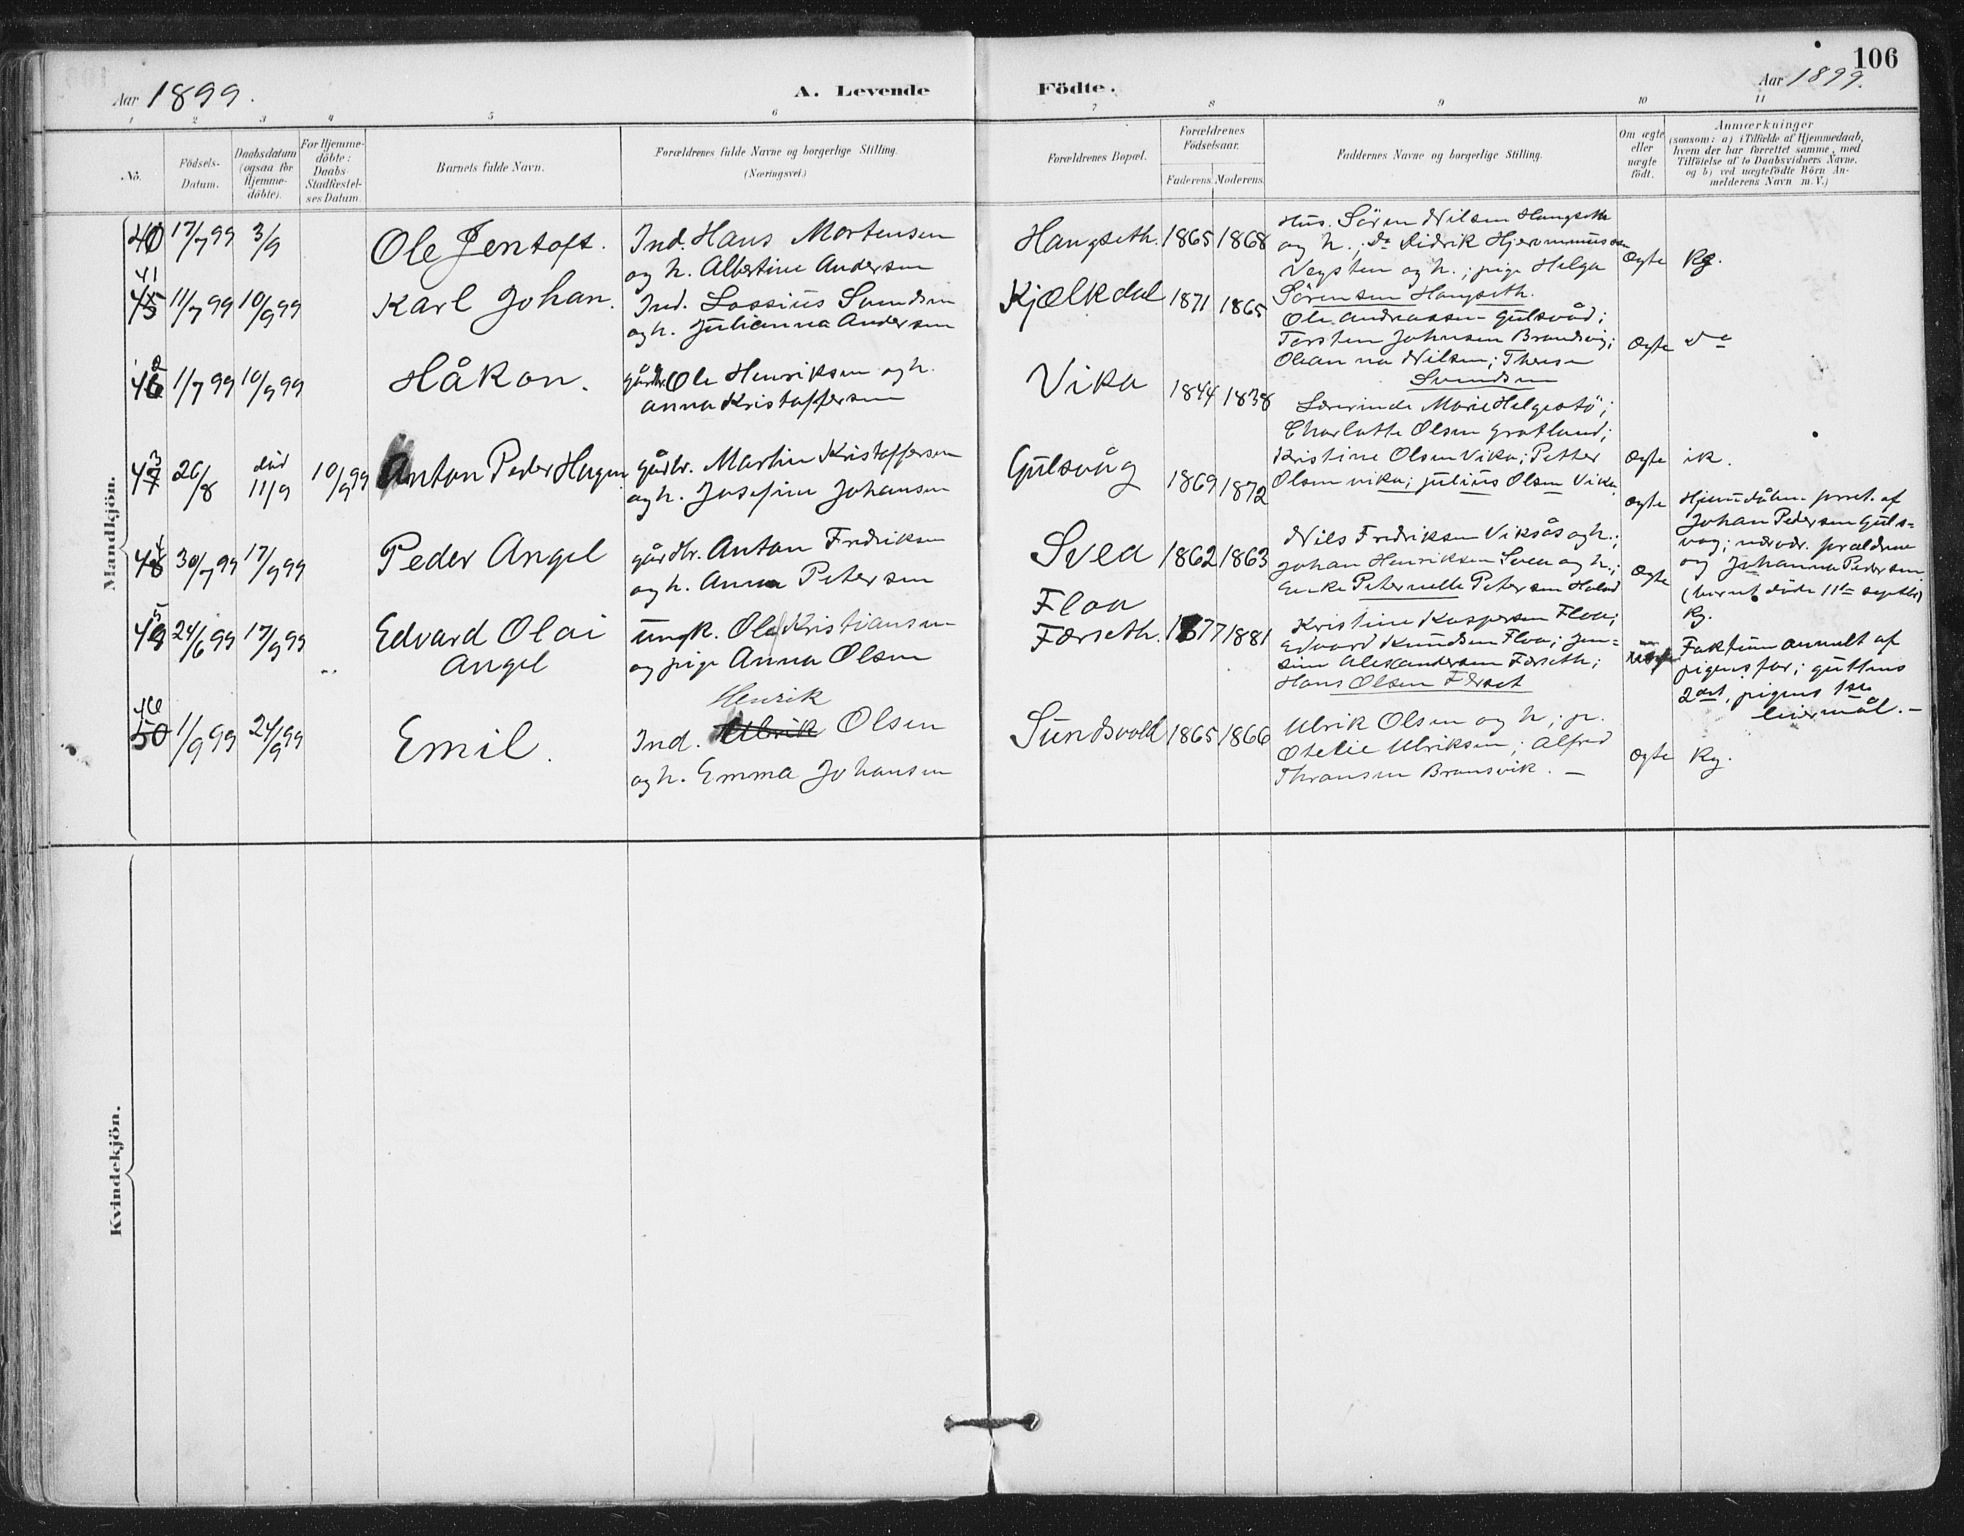 Aar 1899.
A. Levende
Födte.
Aar 1899.
106
1 2 3 4 5 6 7 8 9 10 11
Nö.
Födsels-Datum.
Daabsdatum (ogsaa for Hjemme-döbte).
For Hjemme-döbte: Daabs-Stadfæstel-ses Datum.
Barnets fulde Navn.
Forældrenes fulde Navne og borgerlige Stilling.
(Næringsvei.)
Forældrenes Bopæl.
Forældrenes Födselsaar.
Faderens. Moderens.
Faddernes Navne og borgerlige Stilling.
Om ægte eller uægte födt.
Anmærkninger
(saasom: a) i Tilfælde af Hjemmedaab, hvem der har forrettet samme, med Tilföielse af to Daabsvidners Navne. og b) ved uægtefödte Börn Anmelderens Navn m. V.)
Mandkjön.
40 17/7 99 3/9
Ole Jentoft.
Ind. Hans Mortensen
og h. Albertine Andersen
Hangseth. 1865 1868
Hus. Sören Nilsen Hangseth
og h.; do Didrik Hjeronimussen
og h.; pige Helga
Sörensen Hangseth.
Ægte Kg.
41 45 11/7 99 10/9 99
Karl Johan.
Ind. Lossius Svendsen
og h. Julianna Andersen
Kjælkdal 1871 1865
Ole Andreassen Gulsvåd;
Torsten Johnsen Brandsvig;
Oleanna Nilsen; Theresa
Svendsen
Ægte do
2 46 1/7 99 10/9 99
Håkon.
gårdbr. Ole Henriksen og h.
Anna Kristoffersen
Vika 1844 1838
Lærerinde Marie Helgestö;
Charlotte Olsen Grotland;
Kristine Olsen Vika; Petter
Olsen Vika; Julius Olsen Vika.
Ægte ik.
3 47 26/8 död 11/9 10/9 99
Anton Peder Hagen
gårdbr. Martin Kristoffersen
og h. Josefine Johansen
Gulsvåg 1869 1872
Ægte
Hjemdåben forret. af
Johan Pedersen Guls=
vag; nærvær. forældrene
og Johanna Pedersen.
(barnet döde 11te septbr)
4 48 30/7 99 17/9 99
Peder Angel
gårdbr. Anton Fredriksen
og h. Anna Petersen
Svea 1862 1863
Nils Fredriksen Viksås og h.;
Johan Henriksen Svea og h.;
Enke Peternelle Petersen
Ægte
Kg.
5 49 24/6 99 17/9 99
Edvard Olai
Angel
ungk. Ole Kristiansen
og pige Anna Olsen
Floa
Færseth. 1877 1881
Kristine Kaspersen Floa;
Edvard Knudsen Floa; Jen=
sine Alexandersen Færseth;
Hans Olsen Færset
uægte
Faktum anmeldt af
pigens far; guttens
2det, pigens 1ste
leiermål. -
46 50 1/9 99 24/9 99
Emil.
Henrik
Ind. Ulrik Olsen
og h. Emma Johansen
Sundsvold 1865 1866
Ulrik Olsen og h; p.
Otelie Ulriksen; Alfred
Thransen Bransvik. -
Ægte Kg.
Kvindekjön.